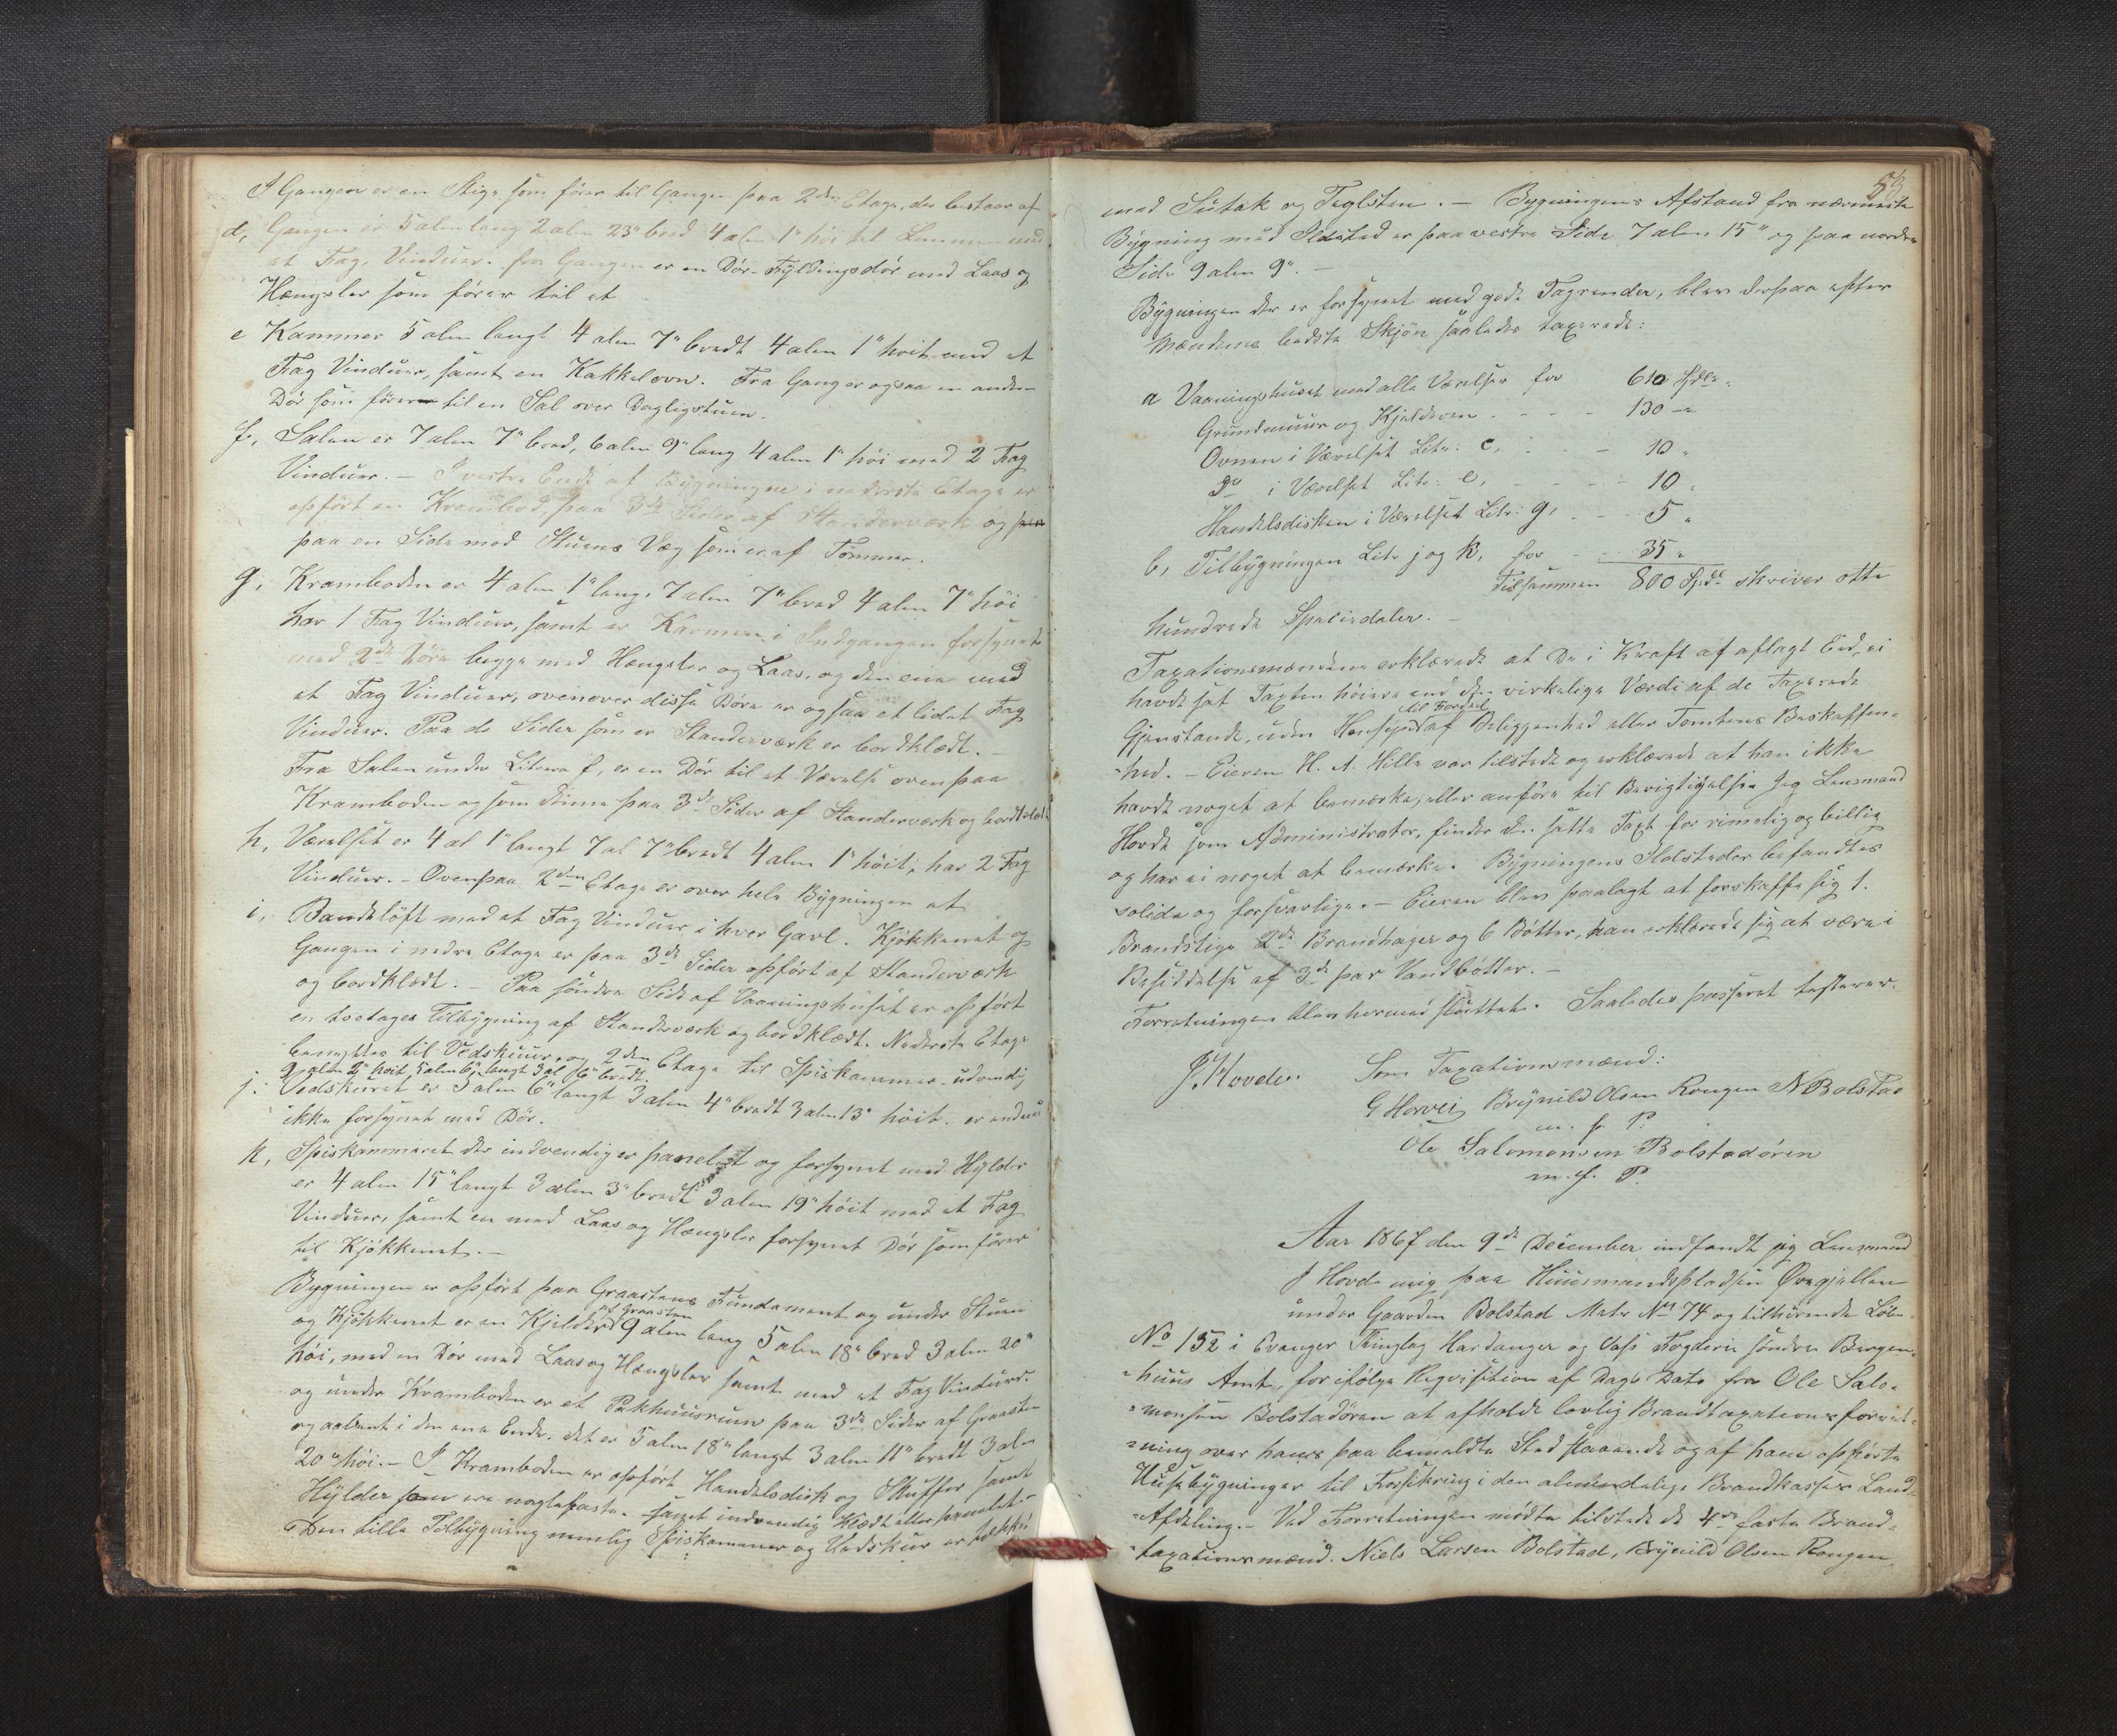 I Gangen er en Stige som fører til Gangen paa 2den Etage, der bestaar af
d, Gangen er 5 alen lang 2 alen 23" bred 4 alen 1" høi til Lemmen med
et Fag Vinduer. fra Gangen er en Dør - Fyldingsdør med Laas og
Hængsler som fører til et
e Kammer 5 alen langt 4 alen 7" bredt 4 alen 1" høit med et
Fag Vinduer, samt en Kakkelovn. Fra Gang er ogsaa en anden
Dør som fører til en Sal over Dagligstuen.
f, Salen er 7 alen 7" bred, 6 alen 9" lang 4 alen 1" høi med 2 Fag
Vinduer. - I vestre Ende af Bygningen i nederste Etage er
opført en Krambod, paa 3de Sider af Standerværk og
paa en Side med Stuens Væg som er af Tømmer.
g, Kramboden er 4 alen 1" lang, 7 alen 7" bred 4 alen 7" høi
har 1 Fag Vinduer, samt er Karmen i Indgangen forsynet
med 2de Døre begge med Hængsler og Laas, og den ene med
et Fag Vinduer, ovenover disse Døre er ogsaa et lidet Fag
Vinduer. Paa de Sider som er Standerværk er bordklædt. -
Fra Salen under Litera f, er en Dør til et Værelse ovenpaa
Kramboden og som denne paa 3de Sider af Standerværk og bordklædt
h, Værelset er 4 al 1" langt 7 al 7" bredt 4 alen 1" høit, har 2 Fag
Vinduer. - Ovenpaa 2den Etage er over hele Bygningen et
i, Bandsløft med et Fag Vinduer i hver Gavl. Kjøkkenet og
Gangen i nedre Etage er paa 3de Sider opført af Standerværk
og bordklædt. - Paa søndre Side af Vaaningshuset er opført
en toetages Tilbygning af Standerværk og bordklædt. Nederste Etage
benyttes til Vedskuur, og 2den Etage til Spiskammer. udvendig
9 alen 2" høit, 5 alen 6" langt 3 al 16" bredt.
j. Vedskuret er 5 alen 6" langt 3 alen 4" bredt 3 alen 13" høit. er endnu
ikke forsynet med Dør.
k, Spiskammeret der indvendig er panelet og forsynet med Hylder
er 4 alen 15" langt 3 alen 3" bredt 3 alen 19" høit med et Fag
Vinduer, samt en med Laas og Hængsler forsynet Dør som fører
til Kjøkkenet. -
Bygningen er opført paa Graastens Fundament og under Stuen
og Kjøkkenet er en Kjelder af Graasten 9 alen lang 5 alen 18" bred 3 alen 20"
høi, med en Dør med Laas og Hængsler samt med et Fag Vinduer.
og under Kramboden er et Pakhuusrum paa 3de Sider af Graasten
og aabent i den ene Ende. det er 5 alen 18" langt 3 alen 11" bredt 3 alen
20" høi. - I Kramboden er opført Handelsdisk og Skuffer samt
Hylder som ere naglefaste. samt indvendig klædt eller panelet -
Den lille Tilbygning nemlig Spiskammer og Vedskur er tækket
53
med Sutak og Teglsten. - Bygningens Afstand fra nærmeste
Bygning med Ildsted er paa vestre Side 7 alen 15" og paa nordre
Side 9 alen 9". -
Bygningen der er forsynet med gode Tagrender, blev derpaa efter
Mændenes bedste Skjøn saaledes taxerede:
a Vaaningshuset med alle Værelser for 610 Spdlr.
Grundmuur og Kjelderen . - - - 130 -
Ovnen i Værelset Litr. c, - - - 10 "
Do i Værelset Litr. e, - - - 10 "
Handelsdisken i Værelset Litr. g, - - 5 "
b, Tilbygningen Litr j og k, for - - 35 "
Tilsammen 800 Spdl skriver otte
hundrede Speciedaler. -
Taxationsmændene erklærede at De i Kraft af aflagt Eed, ei
havde sat Taxten høiere end den virkelige Værdi af de taxerede
Gjenstande, uden Hensyn til Fordeel af Beliggenhed eller Tomtens Beskaffen-
-hed. - Eieren H. A. Hille var tilstede og erklærede at han ikke
havde noget at bemærke, eller anføre til Berigtigelse Jeg Lensmand
Hovde som Administrator, finder den satte Taxt for rimelig og billig
og har ei noget at bemærke. Bygningens Ildsteder befandtes
solide og forsvarlige. - Eieren blev paalagt at forskaffe sig 1.
Brandstige 2de Brandhager og 6 Bøtter, han erklærede sig at være i
Besiddelse af 3de par Vandbøtter. -
Forretningen blev hermed sluttet. Saaledes passeret testerer.
J. Hovde. Som Taxationsmænd:
G Horvei Brynild Olsen Rongen N Bolstad
m. p. P.
Ole Salomonsen Bolstadøren
m. f. P.
Aar 1867 den 9de December indfandt jeg Lensmand
J Hovde mig paa Huusmandspladsen Øvregjellen
under Gaarden Bolstad Matr No 74 og tilhørende Løbe
No 152 i Evanger Thinglag Hardanger og Voss Fogderie søndre Bergen-
-huus Amt, for ifølge Reqvisition af Dags Dato fra Ole Salo-
-monsen Bolstadøren at afholde lovlig Brandtaxationsforret-
-ning over hans paa bemeldte Sted staaende og af ham opførte
Huusbygninger til Forsikring i den almindelige Brandkasses Land
-Afdeling. - Ved Forretningen mødte tilstede de 4re faste Brand-
-taxationsmænd. Niels Larsen Bolstad, Brynild Olsen Rongen